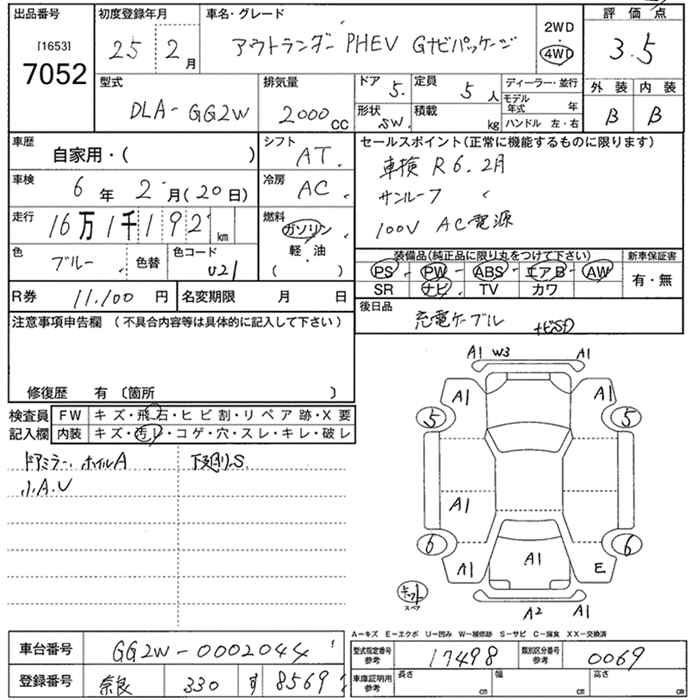 出品番号
[1653]
7052
初度登録年月
25 2月
車名・グレード
アウトランダーPHEV Gナビパッケージ
2WD
4WD
評価点
3.5
外装 内装
B B
型式
DLA-GG2W
排気量
2000cc
ドア 5.
形状 SW.
定員 5人
積載 kg
ディーラー・並行
モデル年式 年
ハンドル 左・右
車歴
自家用・( )
シフト AT.
セールスポイント(正常に機能するものに限ります)
車検 R6.2月
サンルーフ
100V AC電源
車検 6年2月(20日)
冷房 AC
走行 16万1千192km
燃料
ガソリン
軽・油
( )
色 ブルー 色替
色コード U21
装備品(純正品に限り丸をつけて下さい)
PS PW ABS エアB AW
SR ナビ TV カワ
新車保証書
有・無
R券 11,100円
名変期限 月 日
後日品
充電ケーブル ナビSD
注意事項申告欄(不具合内容等は具体的に記入して下さい)
修復歴 有〔箇所 〕
検査員記入欄
FW キズ・飛石・ヒビ割・リペア跡・X要
内装 キズ・汚レ・コゲ・穴・スレ・キレ・破レ
ドアミラー ホイルA
下廻りS
小A.U
A1 W3 A1
A1 A1
5 5
A1
6 6
A1 A1 E
スペア
A2 A1
A-キズ E-エクボ U-凹み W-補修跡 S-サビ C-腐食 XX-交換済
車台番号 GG2W-0002044
型式指定番号 参考 17498
類別区分番号 参考 0069
登録番号 奈良 330 す 8569
車庫証明用 参考
長さ cm 幅 cm 高さ cm